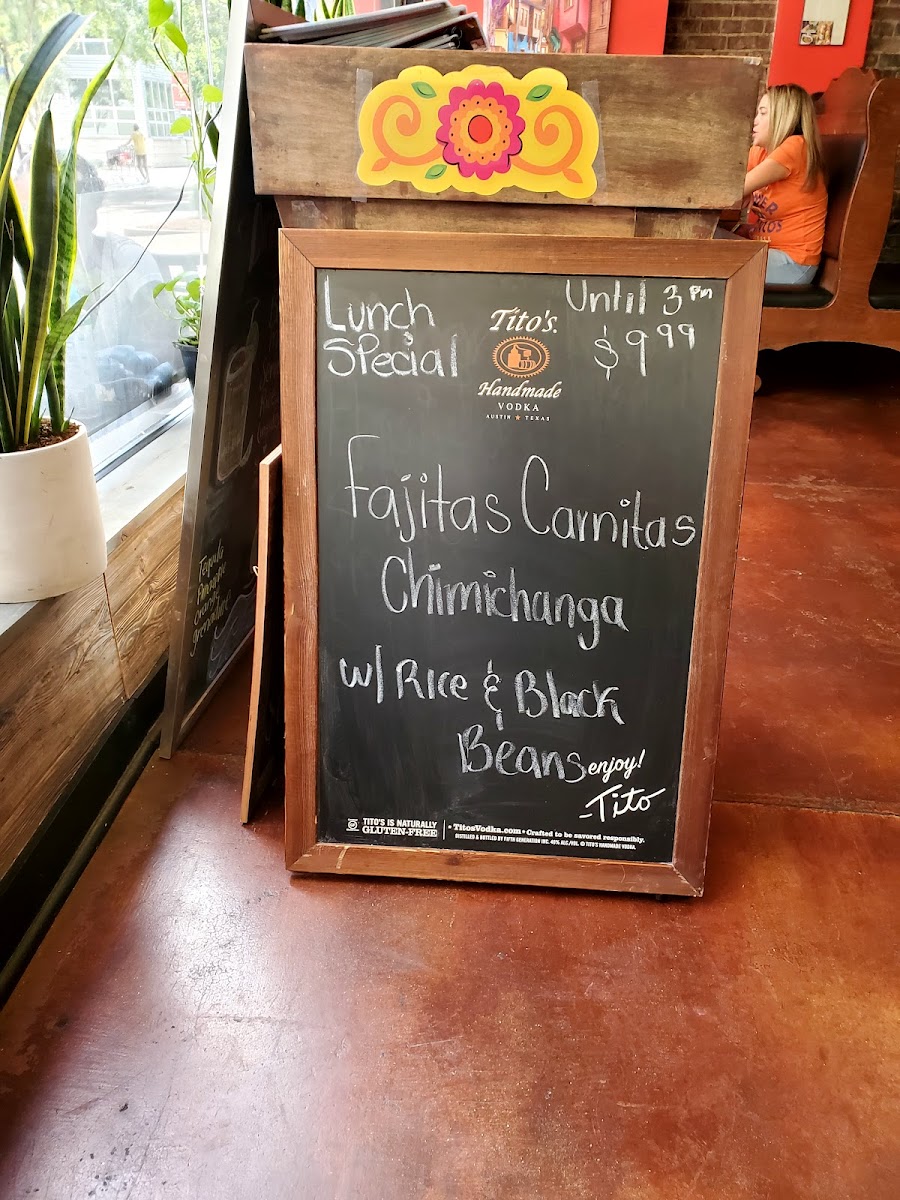 Lunch
Special
Tito's
Handmade
VODKA
AUSTIN ★ TEXAS
Until 3 Pm
$9.99
Fajitas Carnitas
Chimichanga
w/ Rice & Black
Beans
enjoy!
-Tito
TITO'S IS NATURALLY
GLUTEN-FREE
• TitosVodka.com • Crafted to be savored responsibly.
DISTILLED & BOTTLED BY FIFTH GENERATION INC. 40% ALC./VOL. © TITO'S HANDMADE VODKA.
Tequila
orange
grenadine